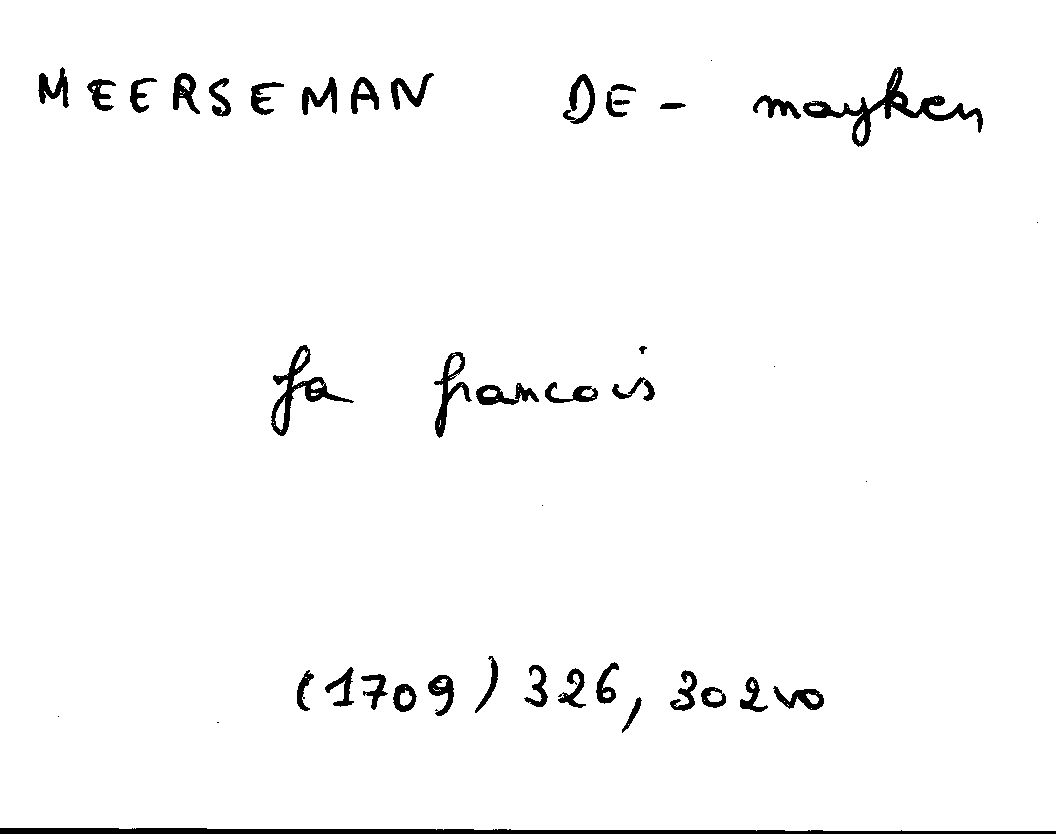 MEERSEMAN DE - mayken
fa francois
(1709) 326, 302vo